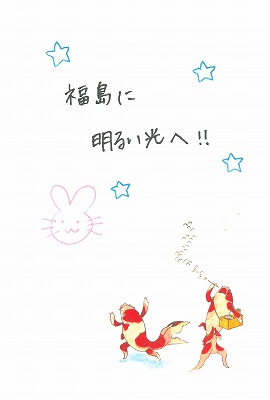 福島に
明るい光へ!!